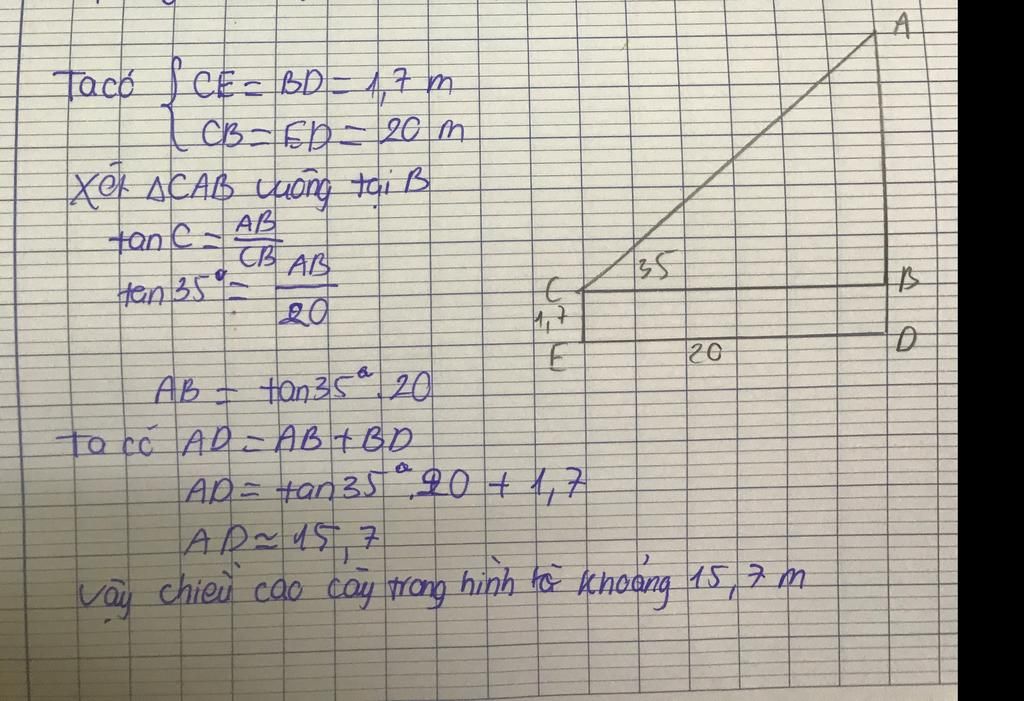 Ta có { CE = BD = 1,7 m
CB = ED = 20 m
Xét ΔCAB vuông tại B
tan C = AB/CB
tan 35° = AB/20
AB = tan 35° . 20
Ta có AD = AB + BD
AD = tan 35° . 20 + 1,7
AD ≈ 15,7
Vậy chiều cao cây trong hình là khoảng 15,7 m
A
35
C
B
1,7
E
20
D